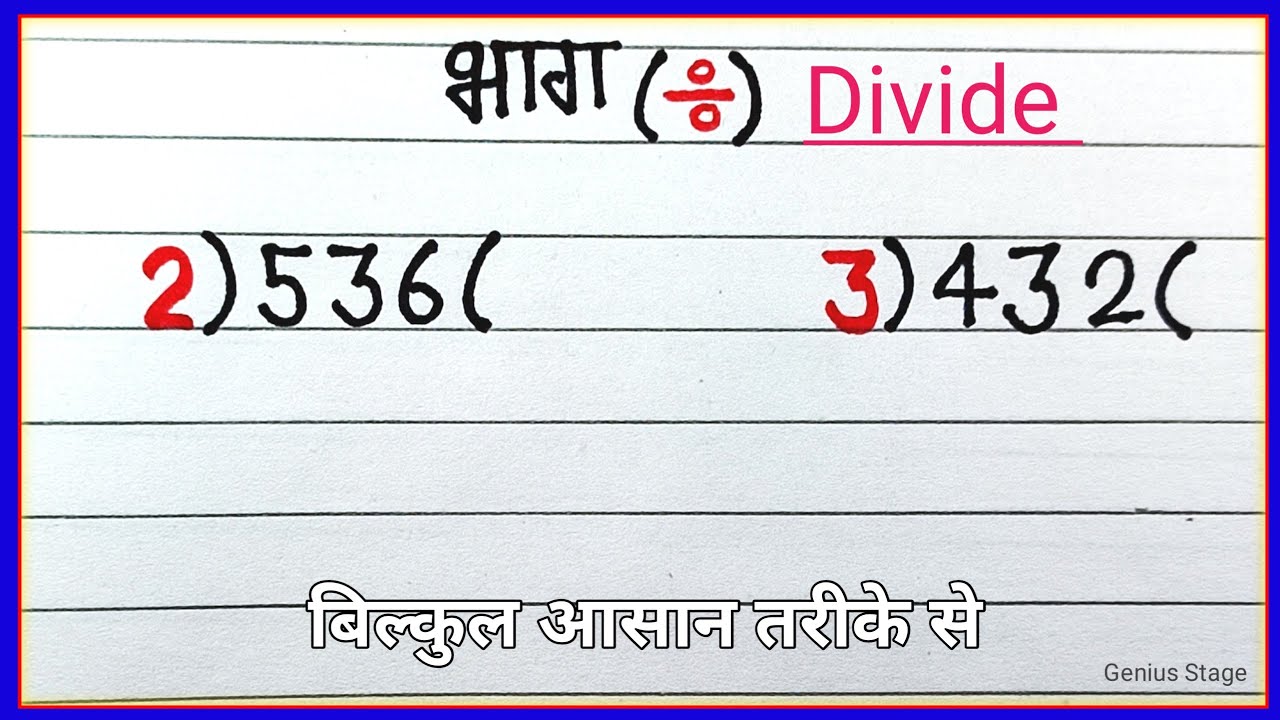 भाग (÷) Divide
2)536( 3)432(
बिल्कुल आसान तरीके से
Genius Stage